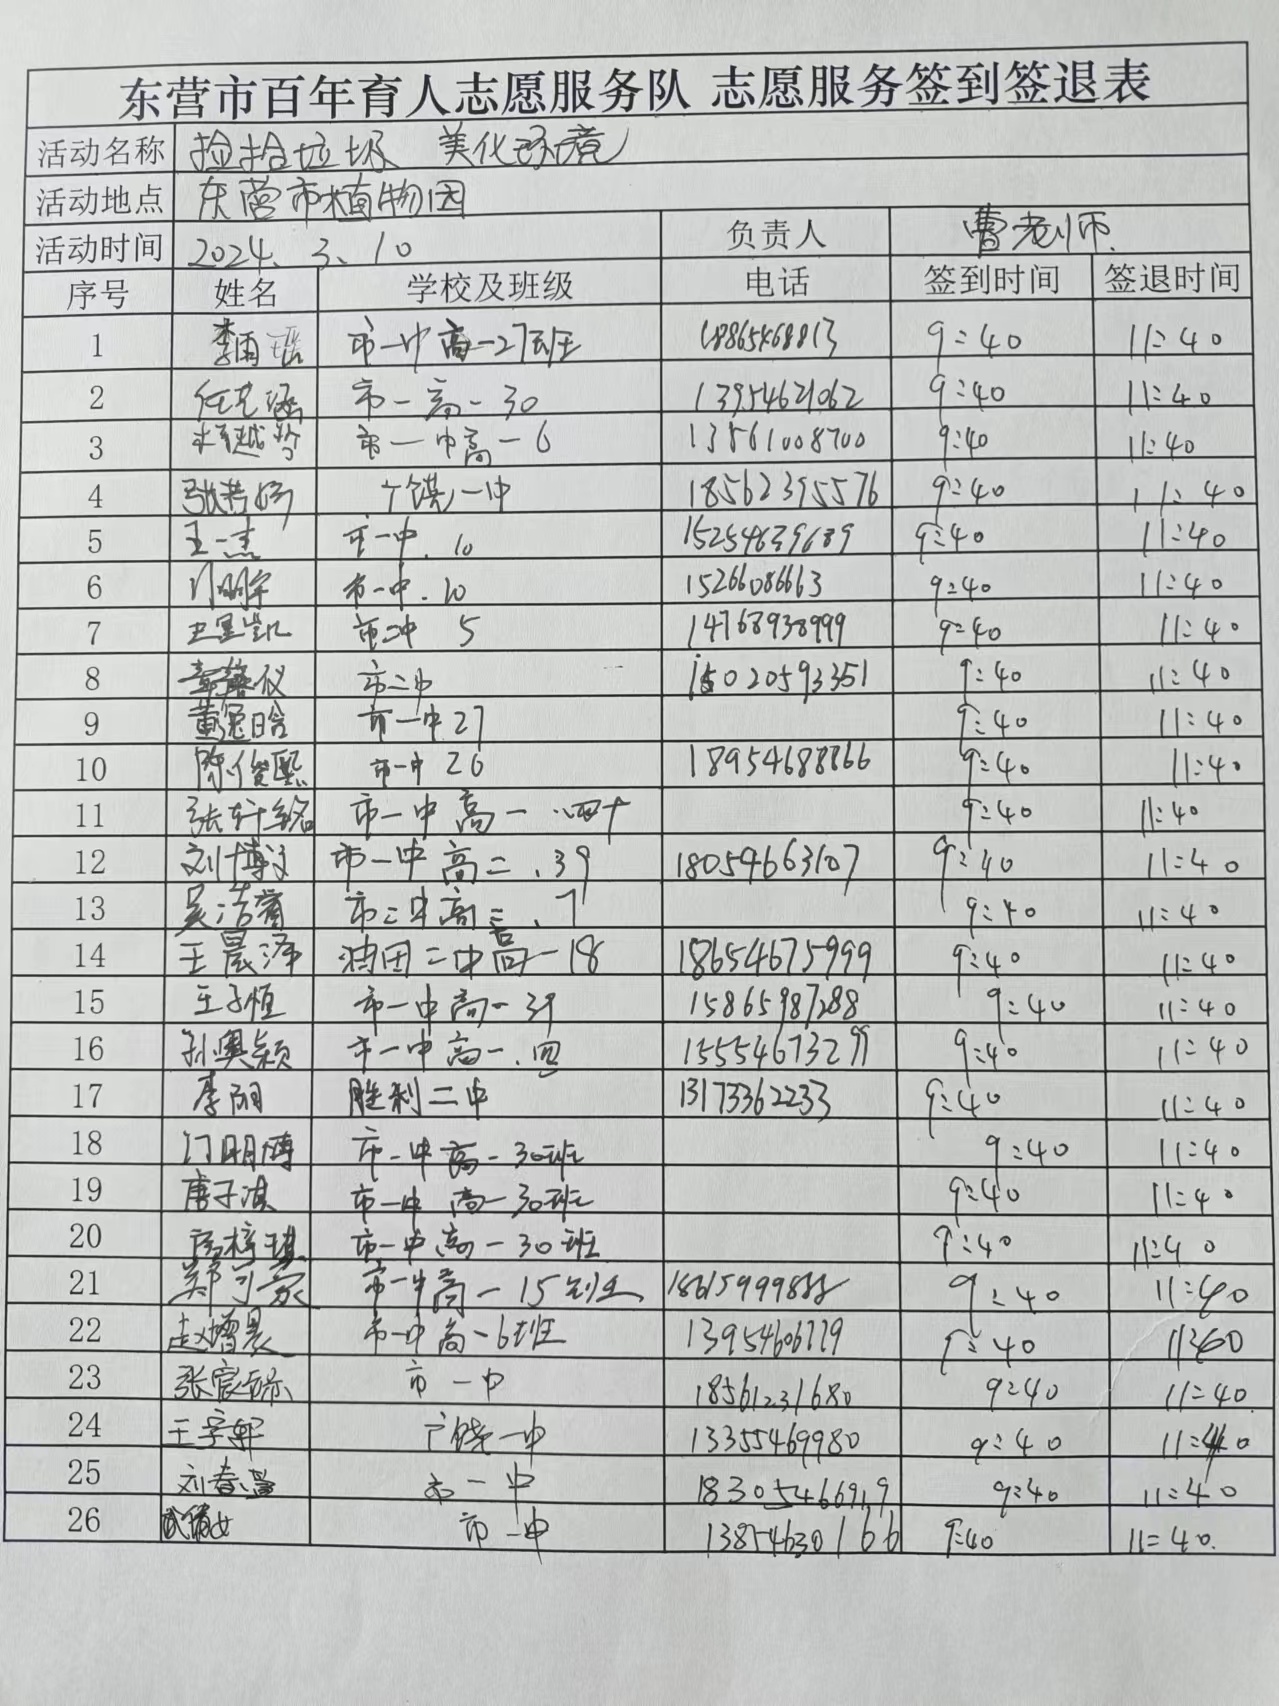 东营市百年育人志愿服务队 志愿服务签到签退表
活动名称 捡拾垃圾 美化环境
活动地点 东营市植物园
活动时间 2024. 3. 10 负责人 曹老师.
序号 姓名 学校及班级 电话 签到时间 签退时间
1 李雨 市一中高一27班 18865468813 9:40 11:40
2 任艺涵 市一高一30 13954621062 9:40 11:40
3 市一中高一6 13561008700 9:40 11:40
4 张若妤 广饶一中 18562395576 9:40 11:40
5 王一杰 市一中. 10 9:40 11:40
6 门明宇 市一中. 10 15266086663 9:40 11:40
7 王星凯 市二中 5 14768938999 9:40 11:40
8 市二中 15020593351 9:40 11:40
9 黄冠晗 市一中27 9:40 11:40
10 陈俊熙 市一中 26 18954688866 9:40 11:40
11 张轩铭 市一中高一.四十 9:40 11:40
12 刘博文 市一中高二.39 18054663107 9:40 11:40
13 吴浩睿 市二中高二.7 9:40 11:40
14 王晨泽 油田二中高一18 18654675999 9:40 11:40
15 王子恒 市一中高一39 15865987288 9:40 11:40
16 孙奥颖 市一中高一.四 15554673299 9:40 11:40
17 李丽 胜利二中 13173362233 9:40 11:40
18 门明博 市一中高一30班 9:40 11:40
19 唐子淇 市一中高一30班 9:40 11:40
20 梓琪 市一中高一30班 9:40 11:40
21 郑子家 市一中高一15 9:40 11:40
22 赵增晨 市一中高一6班 9:40 11:40
23 张宸 市一中 18561231680 9:40 11:40
24 王宇轩 广饶一中 13355469980 9:40 11:40
25 刘春 市一中 18305466919 9:40 11:40
26 武倩女 市一中 13854630166 9:40 11:40.